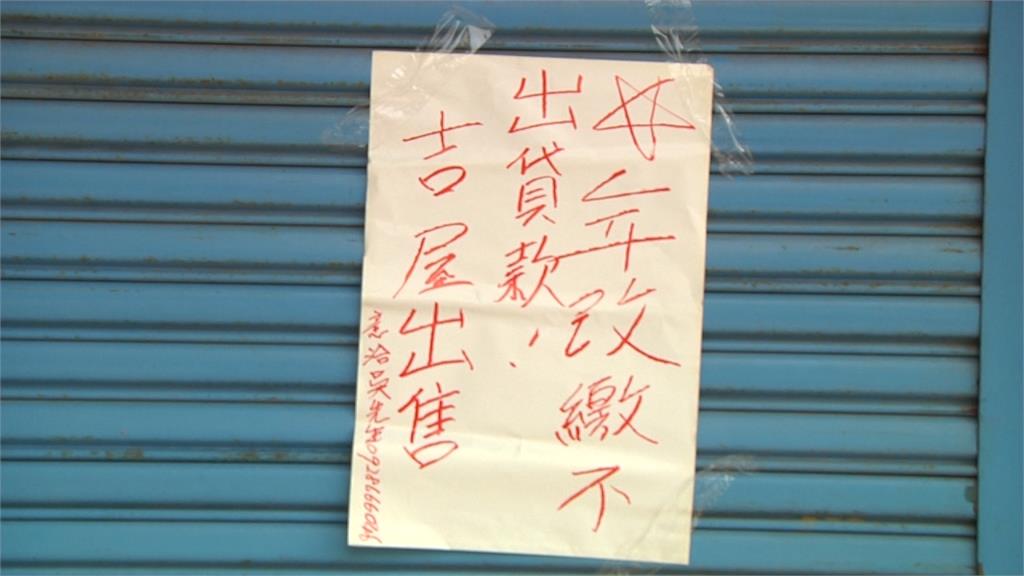 ☆年改繳不
出貸款!
吉屋出售
意洽吳先生0928666046